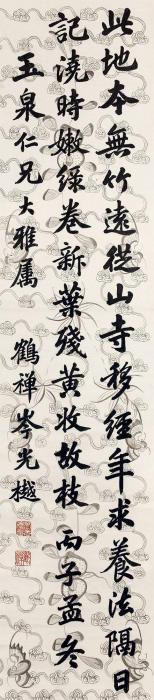 此地本無竹遠從山寺移經年求養法隔日
記澆時嫩綠卷新葉殘黃收故枝 丙子孟冬
玉泉仁兄大雅屬 鶴禅岑光樾